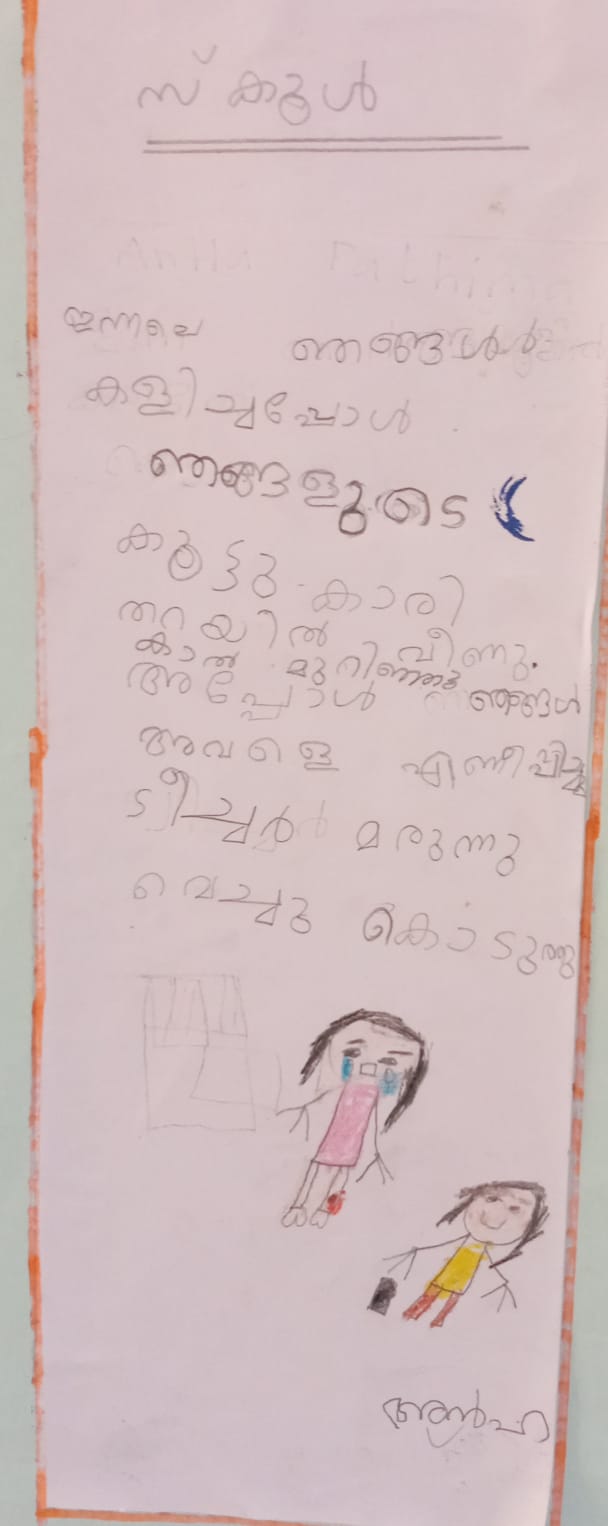 സ്കൂൾ
ഇന്നലെ ഞങ്ങൾ
കളിച്ചപ്പോൾ
ഞങ്ങളുടെ
കൂട്ടുകാരി
തറയിൽ വീണു.
കാൽ മുറിഞ്ഞു
അപ്പോൾ ഞങ്ങൾ
അവളെ എണീപ്പിച്ചു
ടീച്ചർ മരുന്നു
വെച്ചു കൊടുത്തു
അൻഹ